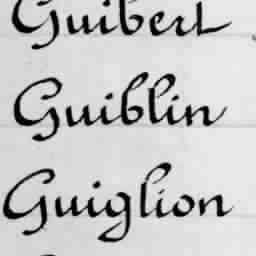 Guibert
Guiblin
Guiglion